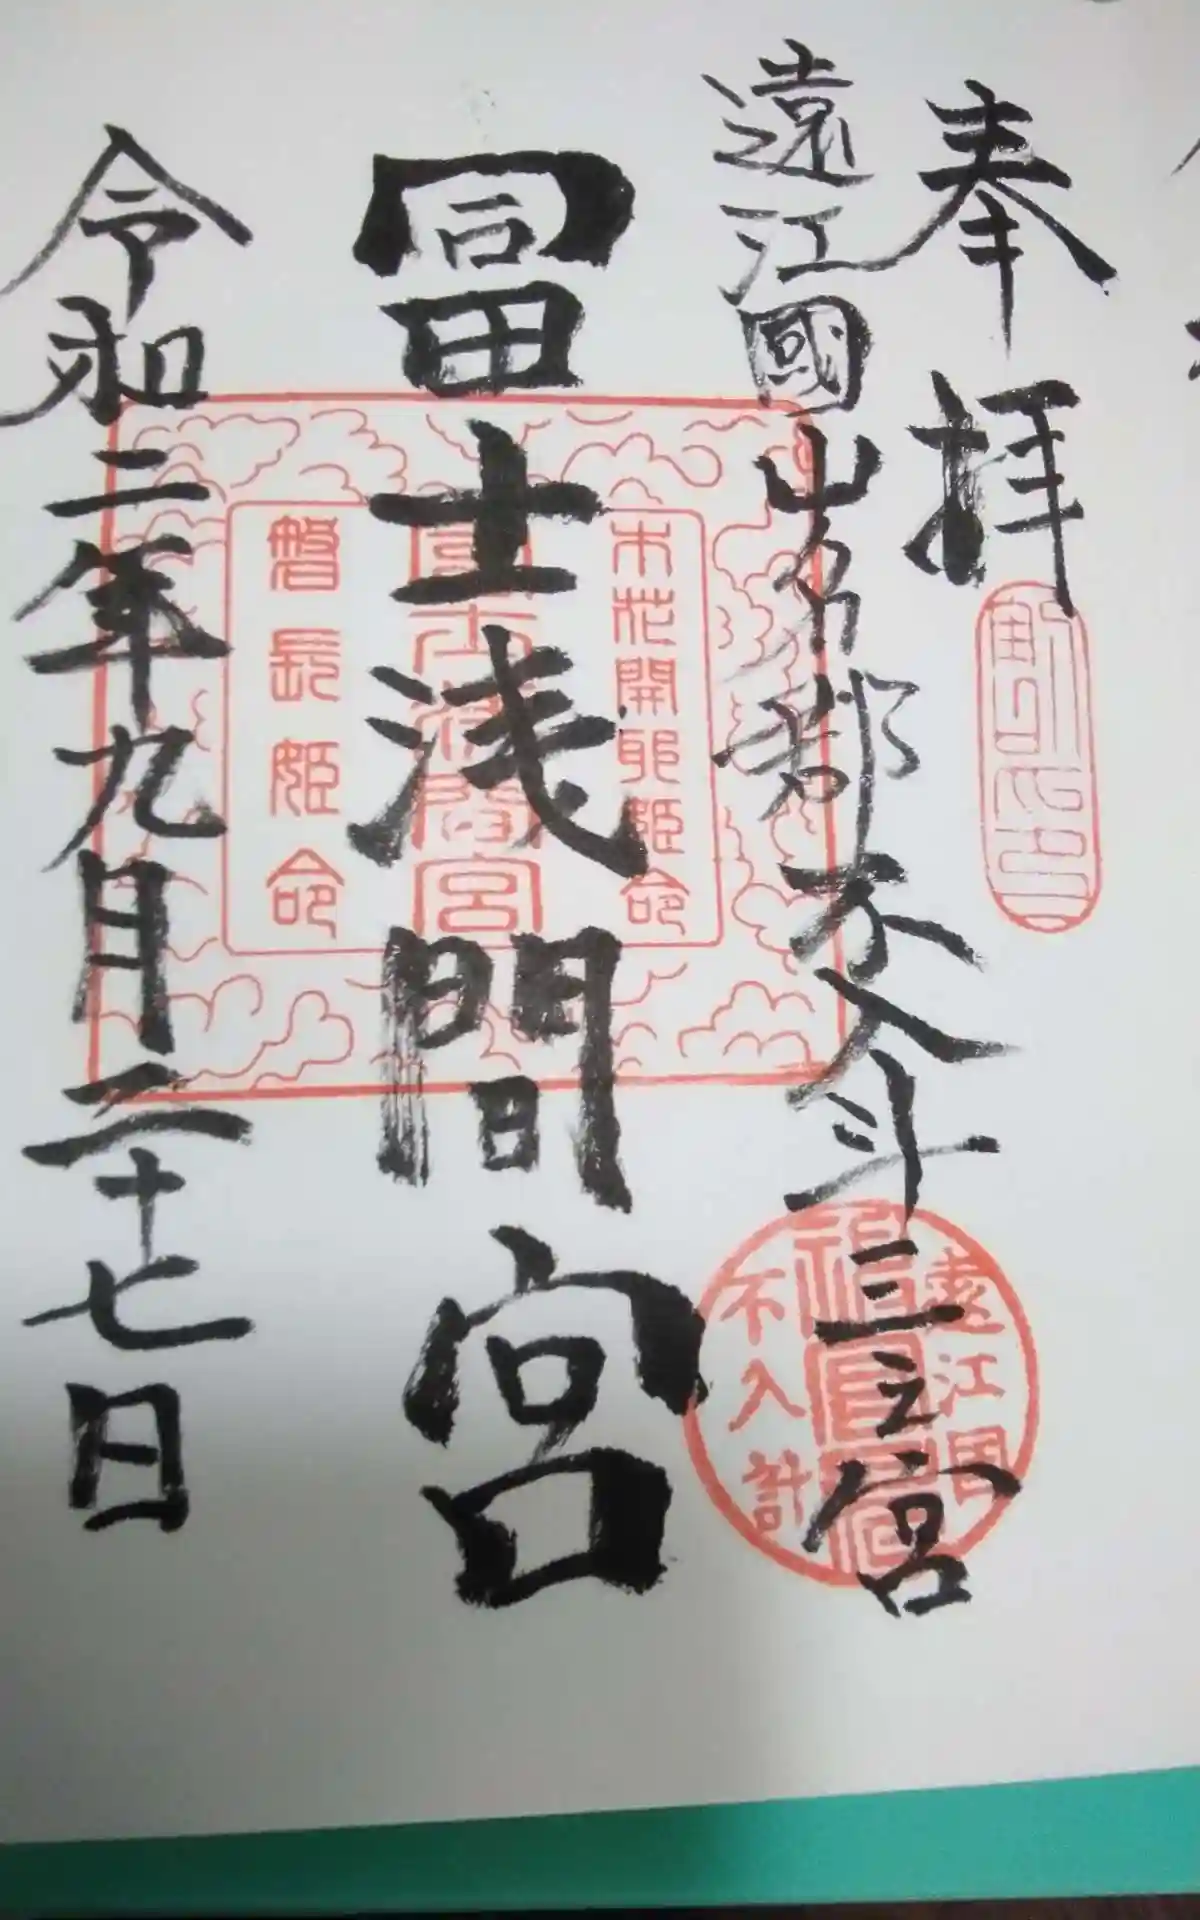 奉拝
遠江國山名郡不入斗三之宮
冨士浅間宮
令和二年九月二十七日
木花開耶姫命
冨士浅間宮
磐長姫命
遠江国
不入計